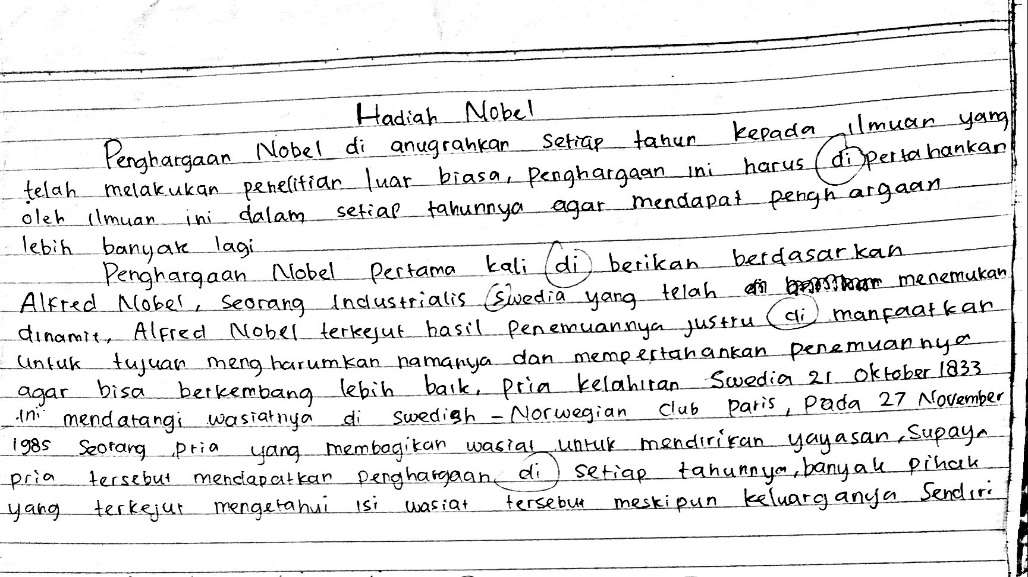 Hadiah Nobel
Penghargaan Nobel di anugrahkan setiap tahun kepada ilmuan yang
telah melakukan penelitian luar biasa, Penghargaan ini harus di pertahankan
oleh ilmuan ini dalam setiap tahunnya agar mendapat penghargaan
lebih banyak lagi
Penghargaan Nobel Pertama kali di berikan berdasarkan
Alfred Nobel, seorang Industrialis swedia yang telah menemukan
dinamit, Alfred Nobel terkejut hasil penemuannya justru di manfaatkan
untuk tujuan mengharumkan namanya dan mempertahankan penemuannya
agar bisa berkembang lebih baik, pria kelahiran Swedia 21 Oktober 1833
ini mendatangi wasiatnya di swedish - Norwegian club Paris, Pada 27 November
1985 Seorang pria yang membagikan wasiat untuk mendirikan yayasan, Supaya
pria tersebut mendapatkan penghargaan di setiap tahunnya, banyak pihak
yang terkejut mengetahui isi wasiat tersebut meskipun keluarganya Sendiri